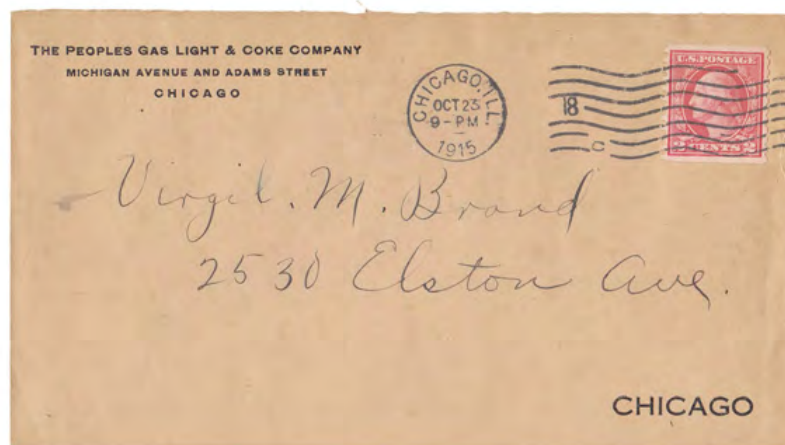 THE PEOPLES GAS LIGHT & COKE COMPANY
MICHIGAN AVENUE AND ADAMS STREET
CHICAGO
CHICAGO, ILL.
OCT 23
9-PM
1915
18
C
U.S. POSTAGE
2 CENTS 2
Virgil. M. Brand
2530 Elston Ave.
CHICAGO